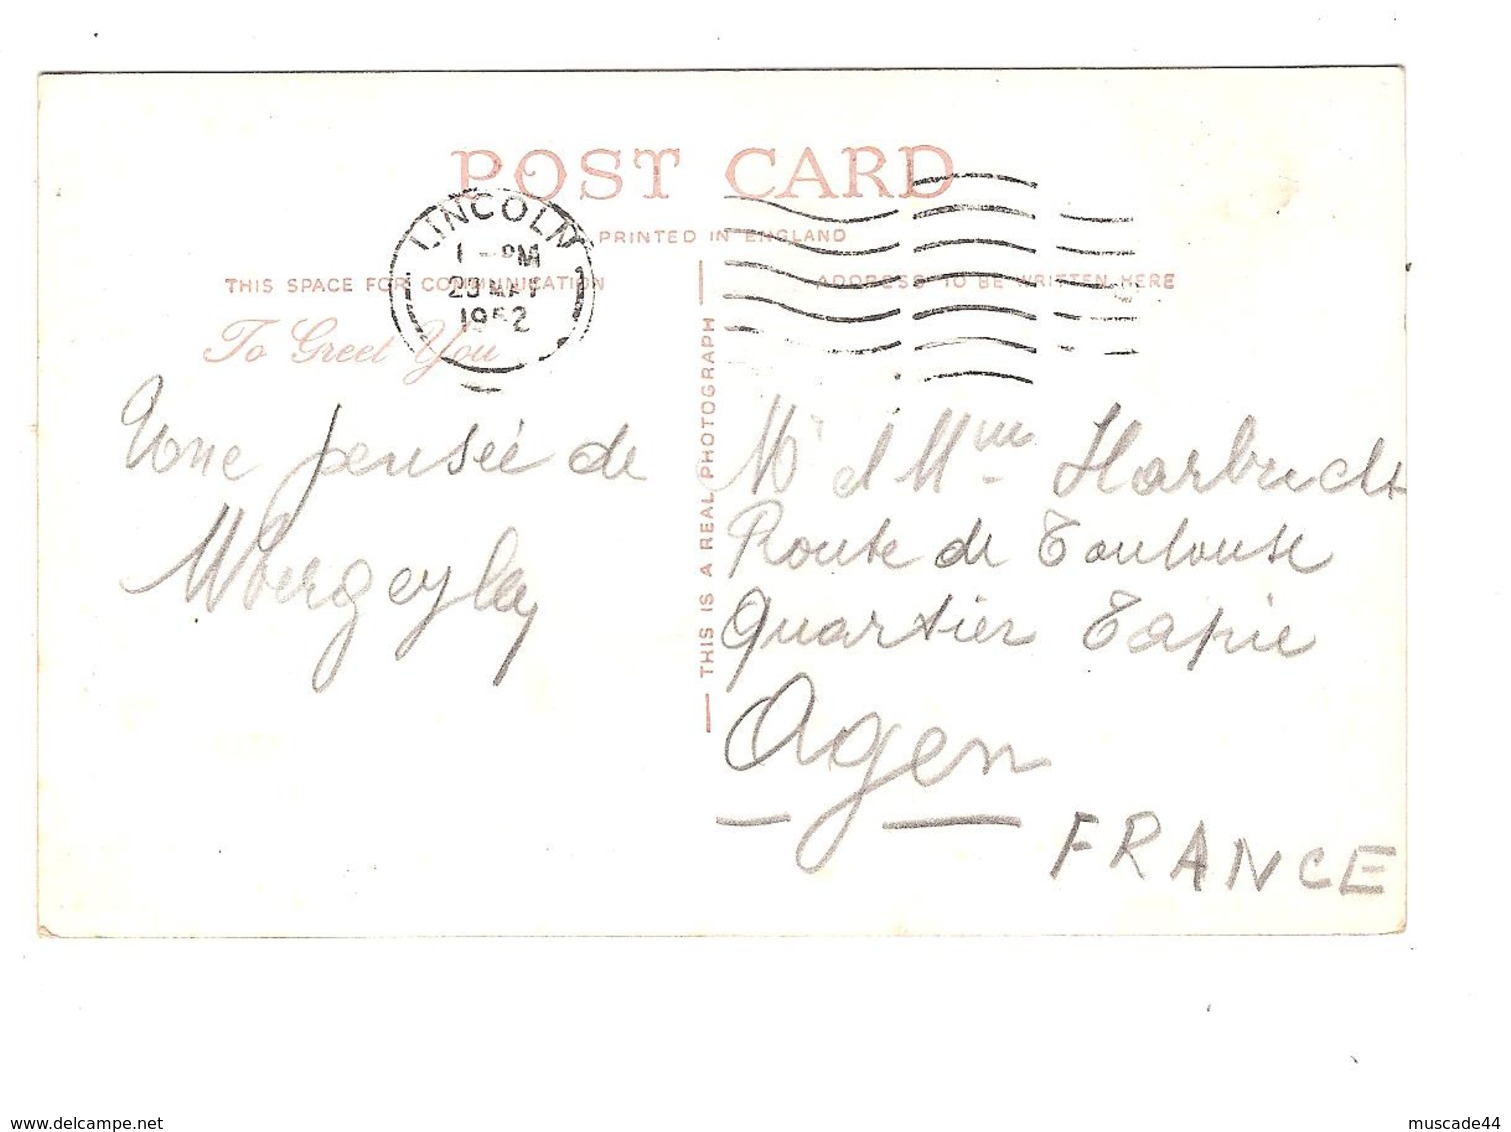 POST CARD
PRINTED IN ENGLAND
THIS SPACE FOR COMMUNICATION
ADDRESS TO BE WRITTEN HERE
LINCOLN
1 - PM
MAY
1952
To Greet You
THIS IS A REAL PHOTOGRAPH
Une pensée de
Mr et Mme
Route de Toulouse
Quartier Tapie
Agen
FRANCE
delcampe.net
muscade44